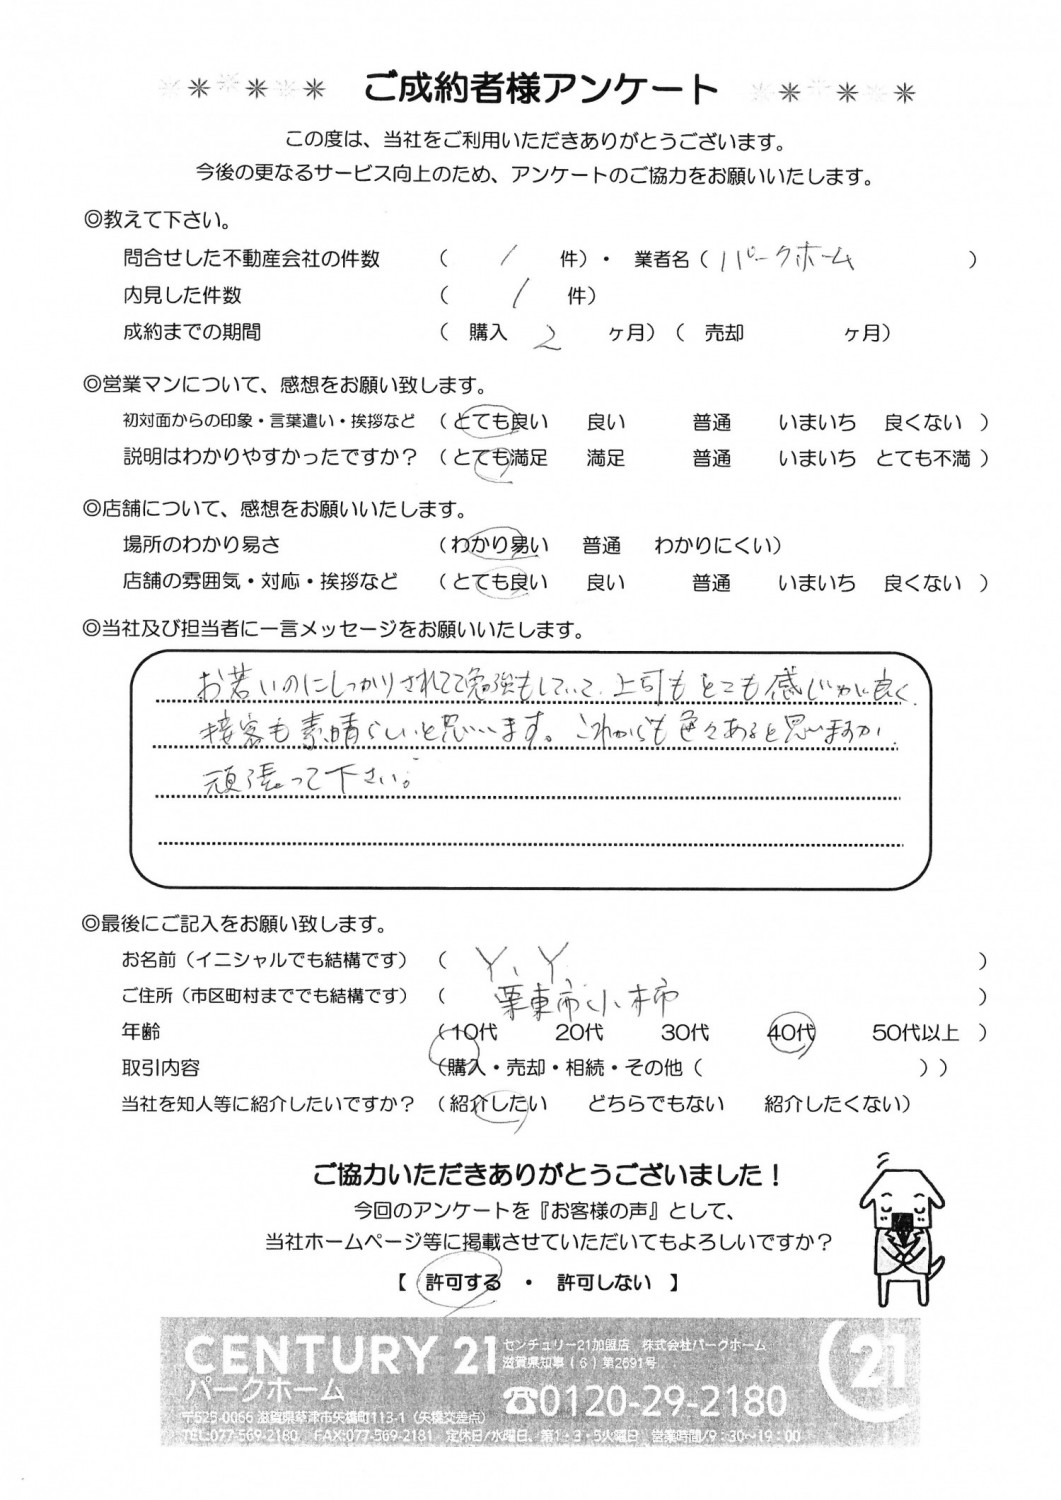 ご成約者様アンケート
この度は、当社をご利用いただきありがとうございます。
今後の更なるサービス向上のため、アンケートのご協力をお願いいたします。
◎教えて下さい。
問合せした不動産会社の件数 ( 1 件)・ 業者名 ( パークホーム )
内見した件数 ( 1 件)
成約までの期間 ( 購入 2 ヶ月) ( 売却 ヶ月)
◎営業マンについて、感想をお願い致します。
初対面からの印象・言葉遣い・挨拶など (とても良い 良い 普通 いまいち 良くない )
説明はわかりやすかったですか? (とても満足 満足 普通 いまいち とても不満 )
◎店舗について、感想をお願いいたします。
場所のわかり易さ (わかり易い 普通 わかりにくい)
店舗の雰囲気・対応・挨拶など (とても良い 良い 普通 いまいち 良くない )
◎当社及び担当者に一言メッセージをお願いいたします。
お若いのにしっかりされてて勉強もしていて、上司もとても感じが良く
接客も素晴らしいと思います。これからも色々あると思いますが
頑張って下さい。
◎最後にご記入をお願い致します。
お名前(イニシャルでも結構です) ( Y、Y )
ご住所(市区町村まででも結構です) ( 栗東市小柿 )
年齢 (10代 20代 30代 40代 50代以上 )
取引内容 (購入・売却・相続・その他 ( ) )
当社を知人等に紹介したいですか? (紹介したい どちらでもない 紹介したくない)
ご協力いただきありがとうございました!
今回のアンケートを『お客様の声』として、
当社ホームページ等に掲載させていただいてもよろしいですか?
【 許可する ・ 許可しない 】
CENTURY 21 センチュリー21加盟店 株式会社パークホーム
滋賀県知事(6)第2691号
パークホーム
☎0120-29-2180
21
〒525-0066 滋賀県草津市矢橋町113-1(矢橋交差点)
TEL:077-569-2180 FAX:077-569-2181 定休日/水曜日、第1・3・5火曜日 営業時間/9:30〜19:00